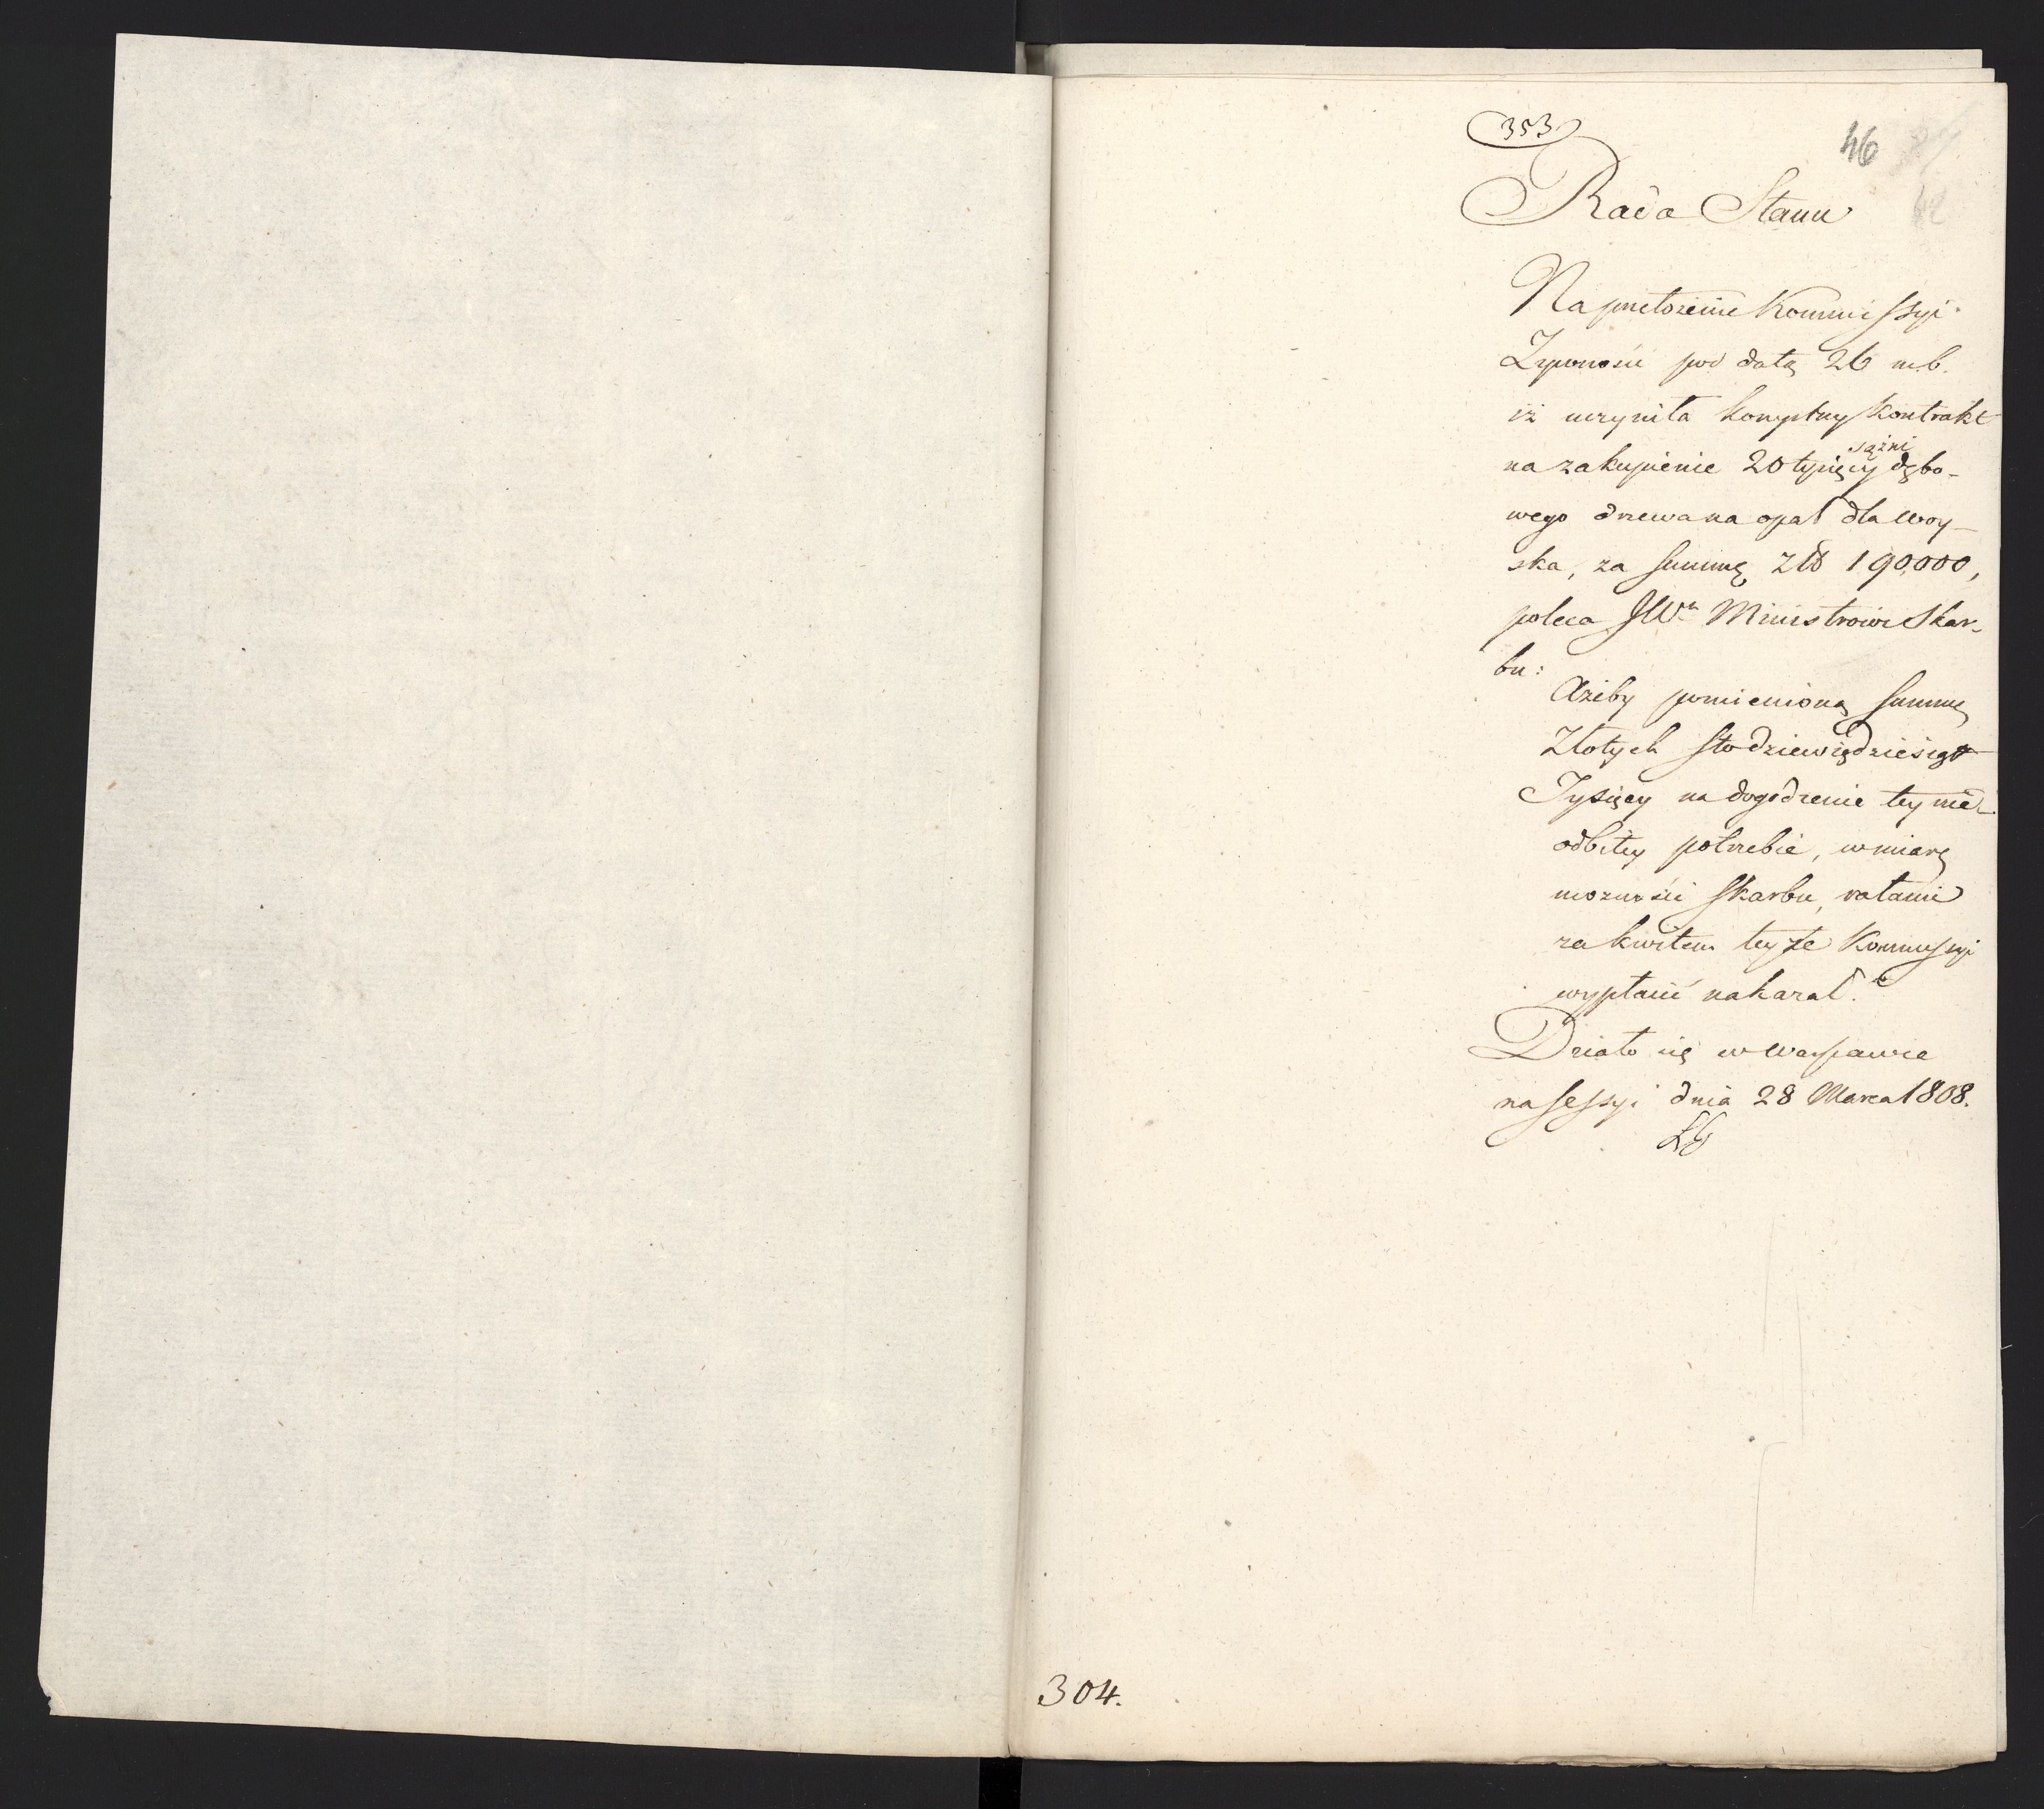 353
46
Rada Stanu
42
Na przełożenie Kommissyi
Żywności pod datą 26 m.b.
iż uczyniła korzystny Kontrakt
na zakupienie 20 tysięcy sążni dębo-
wego drzewa na opał dla woy-
ska, za summę złt 190,000,
poleca JWu Ministrowi Skar-
bu:
Ażeby pomienioną summę
Złotych sto dziewięćdziesiąt
Tysięcy na dogodzenie tey nie-
odbitey potrzebie, w miarę
możności Skarbu, ratami
za kwitem teyże Kommissyi
wypłacić nakazał.
Działo się w Warszawie
na Sessyi dnia 28 Marca 1808.
304.